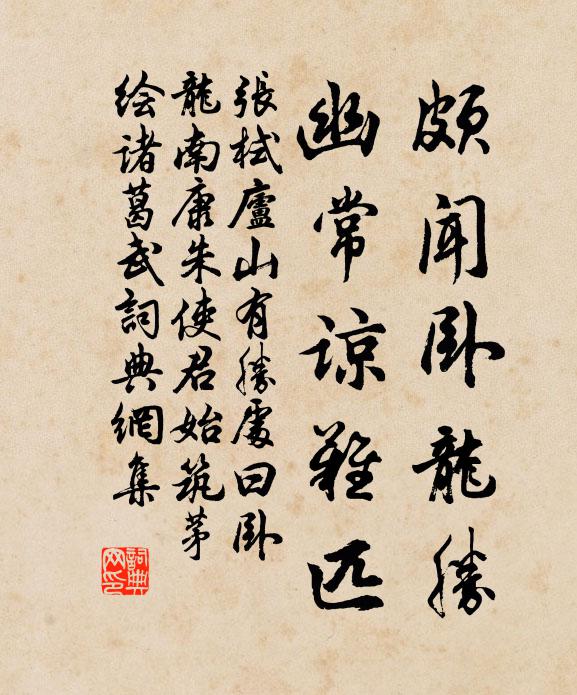 頗聞卧龍勝
幽常諒難匹
張栻廬山有勝處曰卧
龍南康朱使君始筑茅
绘诸葛武詞典網集
詞典
网印